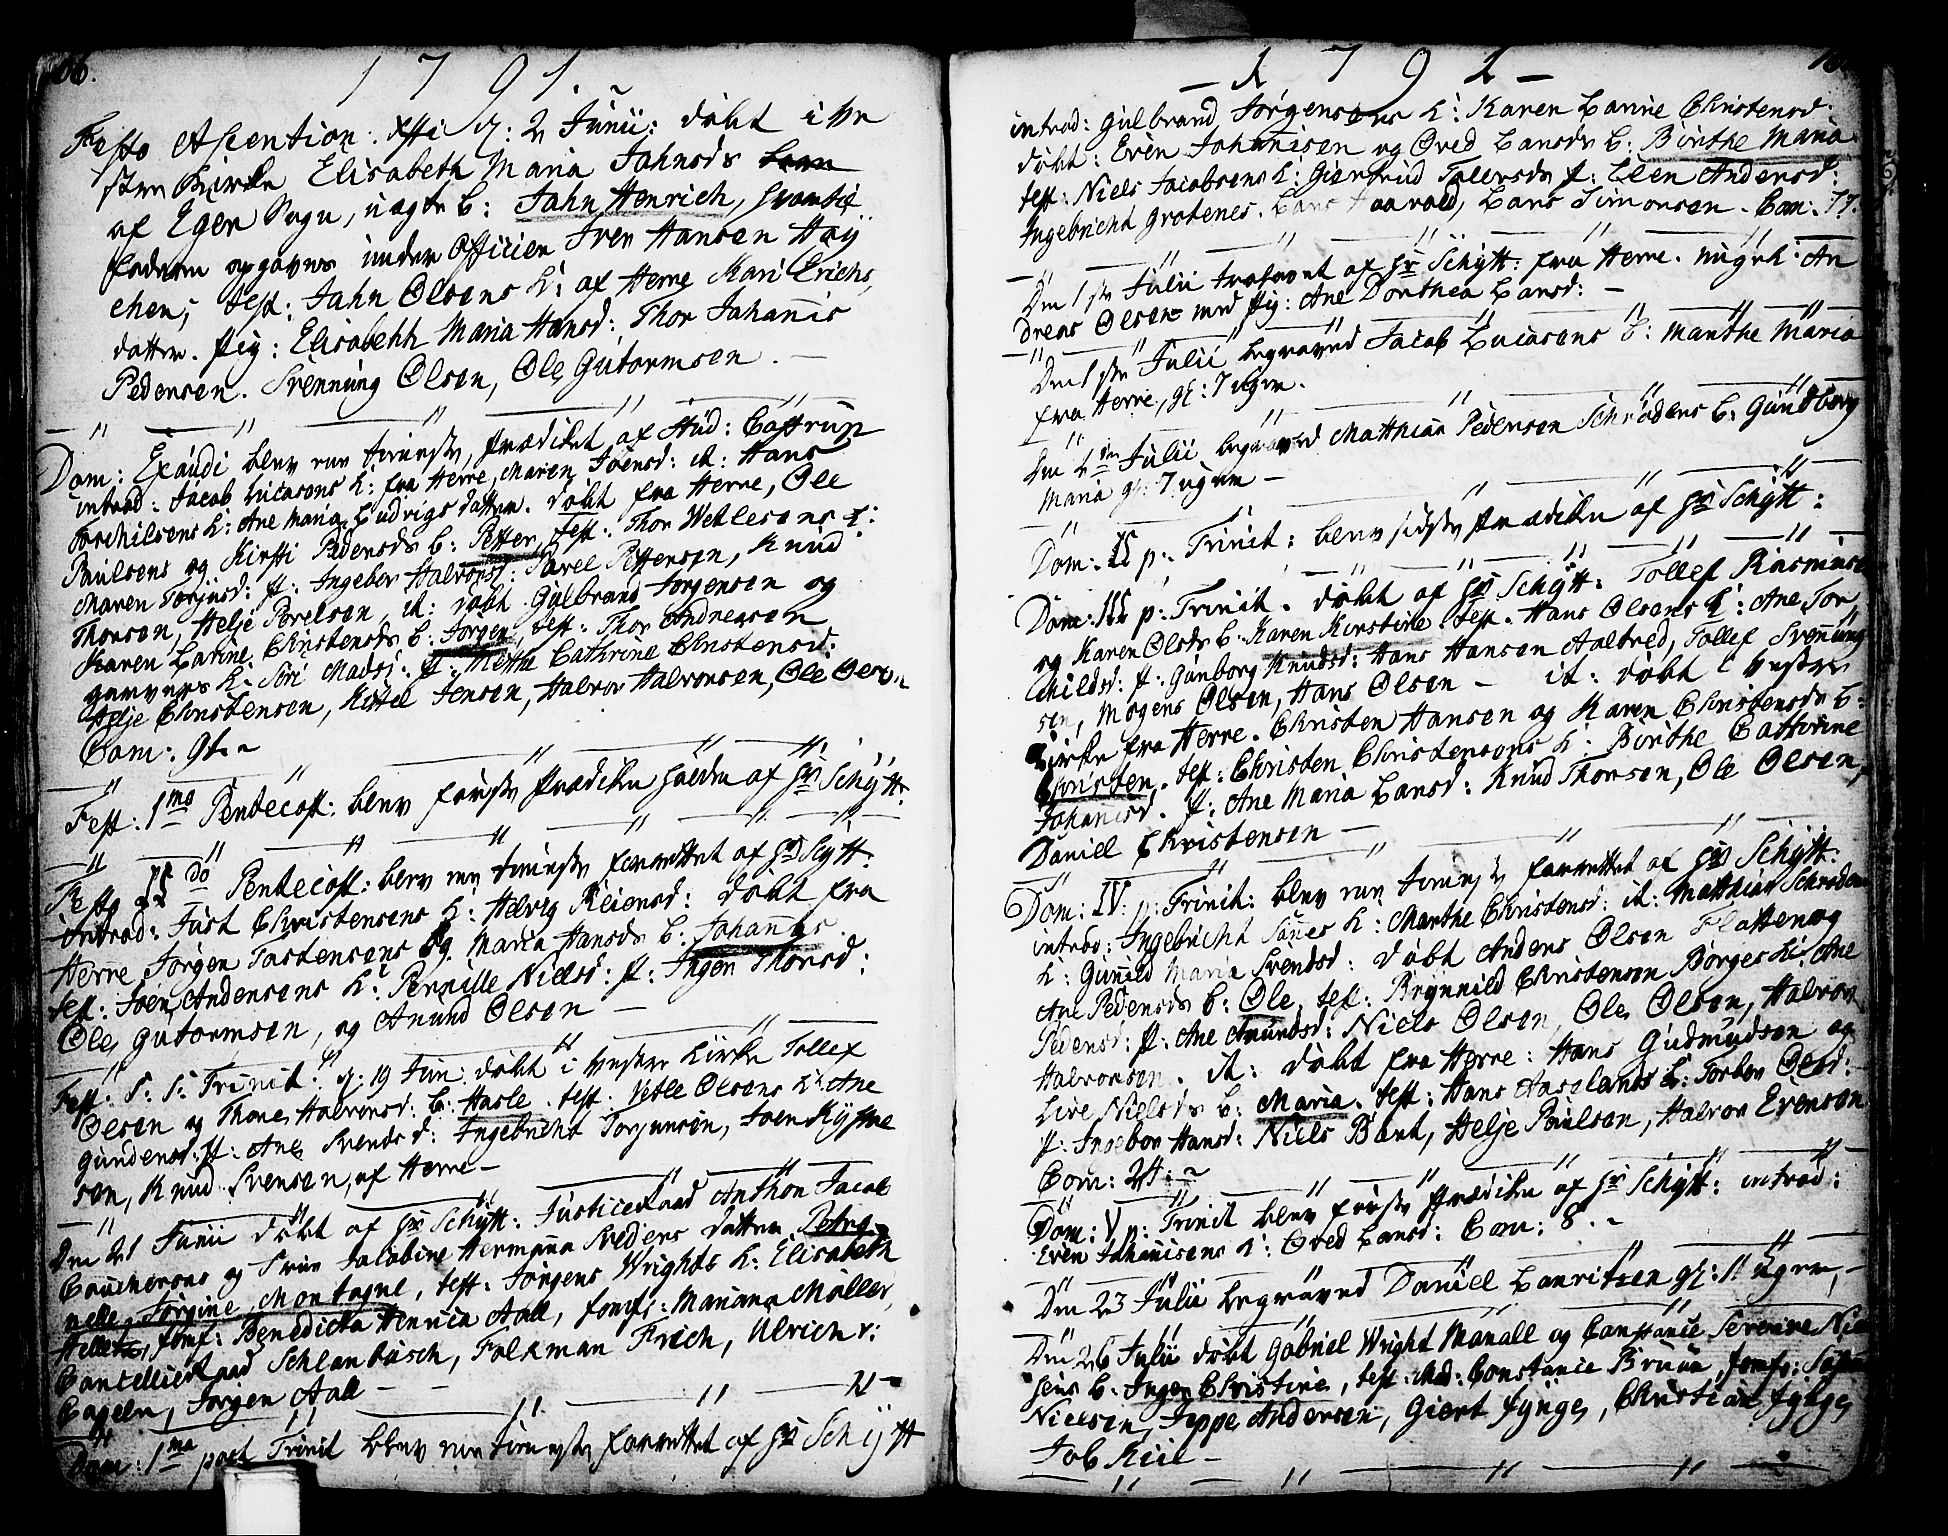 66.
1791
Festo Ascention. Xsti d: 2 Junii: döbt i Ve
stre Kirke Elisabeth Maria Jahnsds
af Eger Sogn, uægte b: Jahn Henrich,
faderen opgaves under Officien Iver Hansen Höÿ
ehen; test: Jahn Olsens k: af Herre Kari Erichs
datter. pig: Elisabehh Maria Hansd: Thor Johannis
Pedersen. Svennung Olsen, Ole Gutormsen. —
Dom: Exaudi blev en tieneste, prædiket af Stud: Castrup
introd: Jacob Lucasens k: fra Herre, Maren Joensd: it: Hans
Torchilsens k: Ane Maria Ludvigs datter. döbt fra Herre, Ole
Paulsens og Kirsti Pedersds b: Petter, test: Thor Wetlesens k:
Maren Torjusd: p: Ingebor Halvorsd: Povel Pettersen, Knud
Thorsen, Helje Povelsen, it: döbt Gulbrand Jörgensen og
Karen Larine Christensds b: Jörgen, test: Thor Andresen
garvers k: Siri Madsd: p: Mette Cathrine Christensd:
Helje Christensen, Kittel Jensen, Halvor Halvorsen, Ole Olsen
Com: 91.
Fest: 1ma Pentecost: blev förste Prædiken holden af Hr Schÿtt:
Festo II do Pentecost: blev en tieneste forrettet af Hr Scÿtt:
Introd: Just Christensens k: Helvig Reiersd: döbt fra
Herre Jörgen Tostensens og Maria Hansds b: Johannes.
test: Joen Andersens k: Pernille Nielsd: p: Ingen Thorsd:
Ole Gutormsen, og Anund Olsen —
Fest: S. S. Trinit: d: 19 Jun: döbt i Vestre Kirke Tollef
Olsen og Thone Halvorsd: b: Hasle. test: Vetle Olsens k: Ane
Gundersd: p: Ane Svendsd: Ingebricht Torjunsen, Joen
sen, Knud Svensen, af Herre —
Den 21 Junii döbt af Hr Schÿtt: Justiceraad Anthon Jacob
Coucherons og Frue Jacobine Hermana datter Petro
nelle Jorgine Montagne, test: Jörgens Wrights k: Elisabeth
jomf: Benedicta Henrica Aall, jomfr: Mariana Möller,
Cancelliraad Schlanbusch, Folkman Frich, Ulrich v:
Cappeln, Jörgen Aall —
Dom: 1ma post Trinit blev en tieneste forrettet af Hr Schÿtt

— 1791 —
introd: Gulbrand Jörgensens k: Karen Larine Christensd:
döbt: Even Johanisen og Oved Larsds b: Birthe Maria
test: Niels Jacobsens k: Giertrud Tollersds p: Elen Andersd:
Ingebricht Grotenes. Lars Lars Simonsen. Com: 77.
Den 1ste Julii trolovet af Hr Schÿtt: fra Herre. An
dreas Olsen med pig: Ane Dorthea Larsd: —
Den 1ste Julii begraved Jacob Lucasens b: Marthe Maria
fra Herre, gl: 7 uger.
Den 2den Julii begraved Matthias Pedersen Schröders b: Gundborg
Maria gl: 7 uger —
Dom: II p: Trinit: blev sidste Prædiken af Hr Schÿtt:
Dom: III p: Trinit. döbt af Hr Schÿtt: Tollef Rasmusen
og Karen Olsds b: Karen Kirstine test: Hans Olsens k: Ane Tor
childsd: p: Gunborg Knudsd: Hans Hansen Aaltved, Tollef Svennung
sen, Mogens Olsen, Hans Olsen — it: döbt i Vestre
Kirke fra Herre. Christen Hansen og Karen Christensds b:
Christen. test: Christen Christensens k: Birthe Cathrine
Johanisd. p: Ane Maria Larsd: Knud Thorsen, Ole Olsen,
Daniel Christensen —
Dom: IV: p: Trinit: blev en tieneste forrettet af Hr Schÿtt:
introd: Ingebricht k: Marthe Christensd: it: Matthias Schröders
k: Gunild Maria Svendsd: döbt Anders Olsen Flatten og
Ane Pedersds b: Ole. test: Brynnild Christensen Börges k: Ane
Pedersd: p: Ane Anundsd: Niels Olsen, Ole Olsen, Halvor
Halvorsen. it: döbt fra Herre: Hans Gudmundsen og
Live Nielsds b: Maria. test: Hans Aaselands k: Torbor Olsd:
p: Ingebor Hansd: Niels Bant, Helje Paulsen, Halvor Evensen
Com: 24:
Dom: V p: Trinit blev förste Prædiken af Hr Schÿtt: introd:
Even Johanisens k: Oved Larsd: Com: 8.
Den 23 Julii begraved Daniel Lauritsen gl: 11 uger, —
Den 26 Julii döbt Gabriel Wright Manall og Constance Severine Niel
sens b: Inger Christine, test: Mad: Constance Bruun, jomfr:
Nielsen, Jeppe Andersen, Giert Jynge, Christian Jynge,
Job Riil —